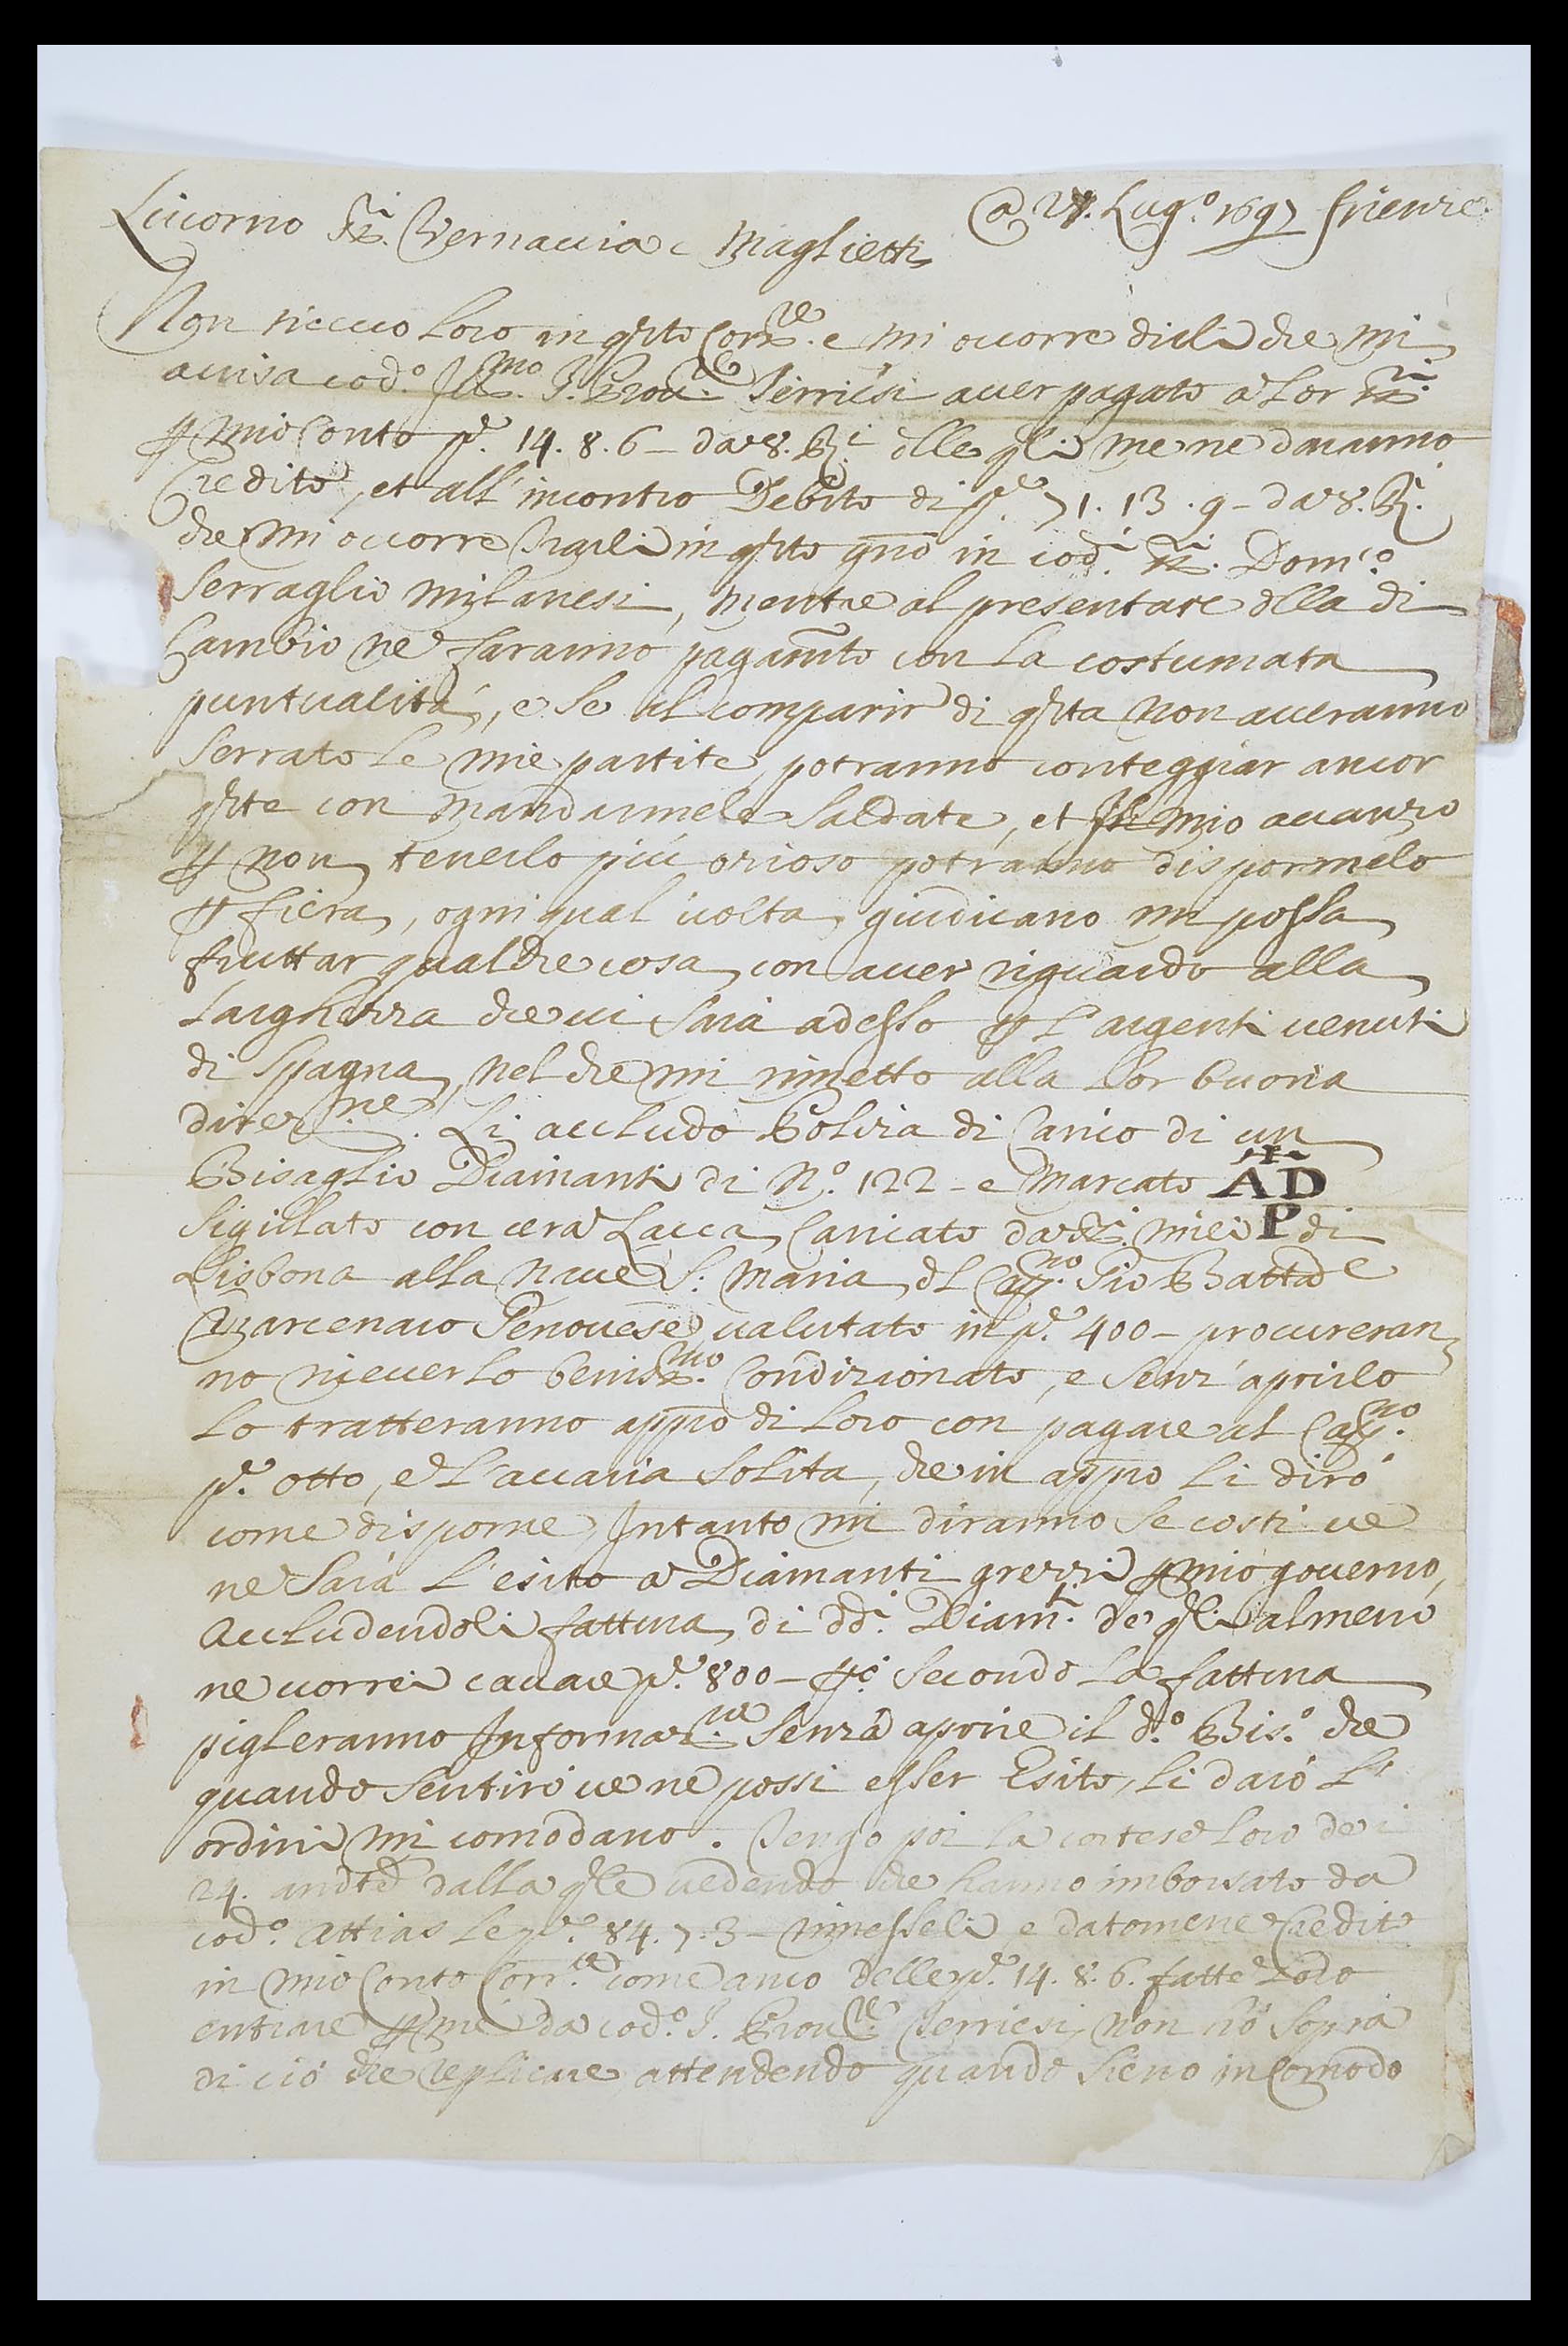 Liuorno SS.ri Vernaccia e Maglietti
@ 27. Lug.o 1697 firenze
Non riceuo loro in q.sto Corr.re e mi occorre dirli che mi
auisa cod.o Ill.mo S. Prou.re Terriesi auer pagato a Lor SS.ri
p mio Conto p.e 14.8.6 - da 8. R.i dlle q.li me ne daranno
Credito, et all'incontro Debito di p.e 71.13.9 - da 8. R.i
che mi occorre in q.sto gno in cod.i SS.ri Dom.co
Serraglio Milanesi, mentre al presentare dlla di
Cambio ne faranno pagamto con la costumata
puntualità, e se al comparir di q.sta non aueranno
serrato le mie partite, potranno conteggiar ancor
q.ste con mandarmele saldate, et mio auanzo
p non tenerlo più ozioso potranno dispormelo
p fiera, ogni qual uolta giudicano mi possa
fruttar qualche cosa, con auer riguardo alla
larghezza che ui sarà adesso p l'argenti uenuti
di Spagna, nel che mi rimetto alla lor buona
direz.ne. Li accludo Polizia di Carico di un
Bisaglio Diamanti di N.o 122 - e Marcato AD
P
sigillato con cera Lacca, Caricato da SS.ri miei di
Lisbona alla Naue S. Maria dl Cap.no Gio Batta de
Marcenaro Genouese ualutato in p.e 400 - procureran
no riceuerlo beniss.mo Condizionato, e senz'aprirlo
lo tratteranno appo di loro con pagare al Cap.no
p.e otto, e l'auaria solita, che in appo li dirò
come disporne, Intanto mi diranno se costì ue
ne sarà l'esito a Diamanti grezzi p mio gouerno,
Accludendoli fattura di dd.i Diam.ti de q.li almeno
ne uorrei cauare p.e 800 - p.c secondo la fattura
piglieranno Informaz.ne senza aprire il d.o Bis.o che
quando sentirò ue ne possi esser Esito, li darò l'
ordini mi comodano. Tengo poi la cortese loro de i
24. andte dalla q.le uedendo che hanno imborsato da
cod.o Attias le p.e 84.7.3 - rimesseli e datomene Credito
in mio Conto Corr.te come anco delle p.e 14.8.6. fatte lodo
entrare p me da cod.o S. Prou.re Terriesi, non hò sopra
di ciò che replicare, attendendo quando sieno in Comodo